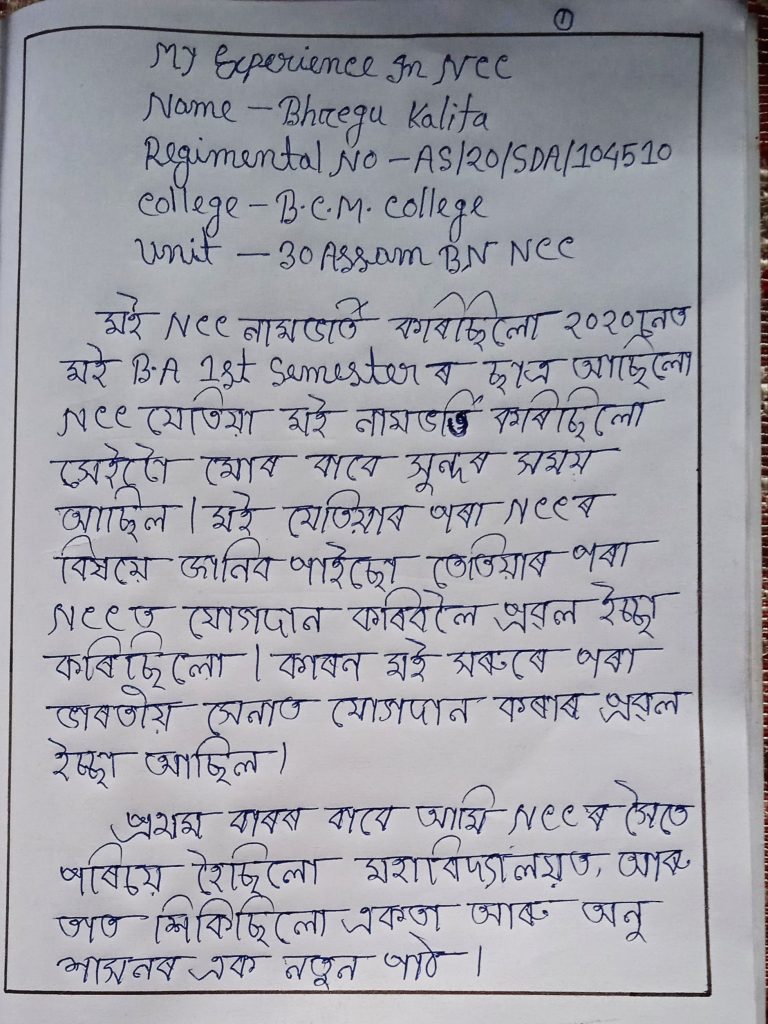 ①
My Experience In NCC
Name – Bhregu Kalita
Regimental No – AS/20/SDA/104510
College – B.C.M. College
Unit – 30 Assam BN NCC
মই NCC নামভৰ্তি কৰিছিলো ২০২০চনত
মই B.A 1st Semester ৰ ছাত্ৰ আছিলো
NCC যেতিয়া মই নামভৰ্তি কৰিছিলো
সেইটো মোৰ বাবে সুন্দৰ সময়
আছিল। মই যেতিয়াৰ পৰা NCC ৰ
বিষয়ে জানিব পাইছো তেতিয়াৰ পৰা
NCC ত যোগদান কৰিবলৈ প্ৰৱল ইচ্ছা
কৰিছিলো। কাৰন মই সৰুৰে পৰা
ভাৰতীয় সেনাত যোগদান কৰাৰ প্ৰৱল
ইচ্ছা আছিল।
প্ৰথম বাৰৰ বাবে আমি NCC ৰ সৈতে
পৰিচয় হৈছিলো মহাবিদ্যালয়ত, আৰু
তাত শিকিছিলো একতা আৰু অনু
শাসনৰ এক নতুন পাঠ।